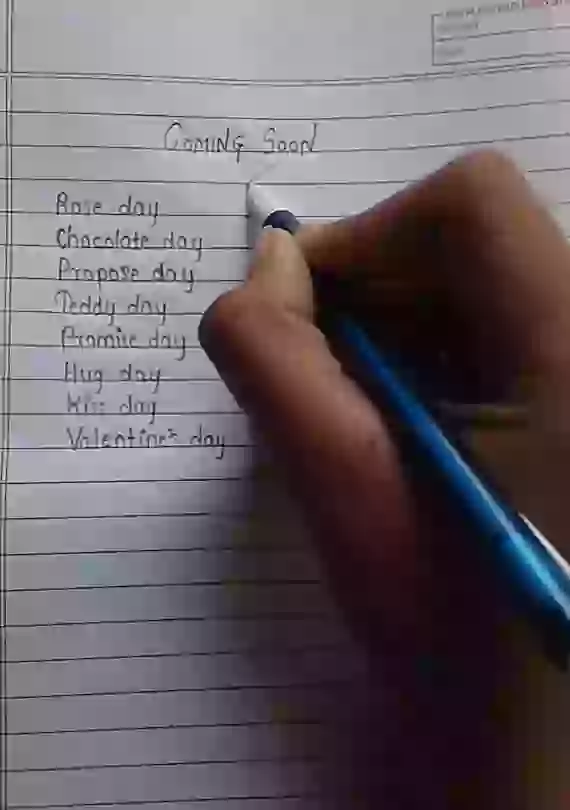 COMING SOON
Rose day
Chocolate day
Propose day
Teddy day
Promise day
Hug day
Kiss day
Valentine's day